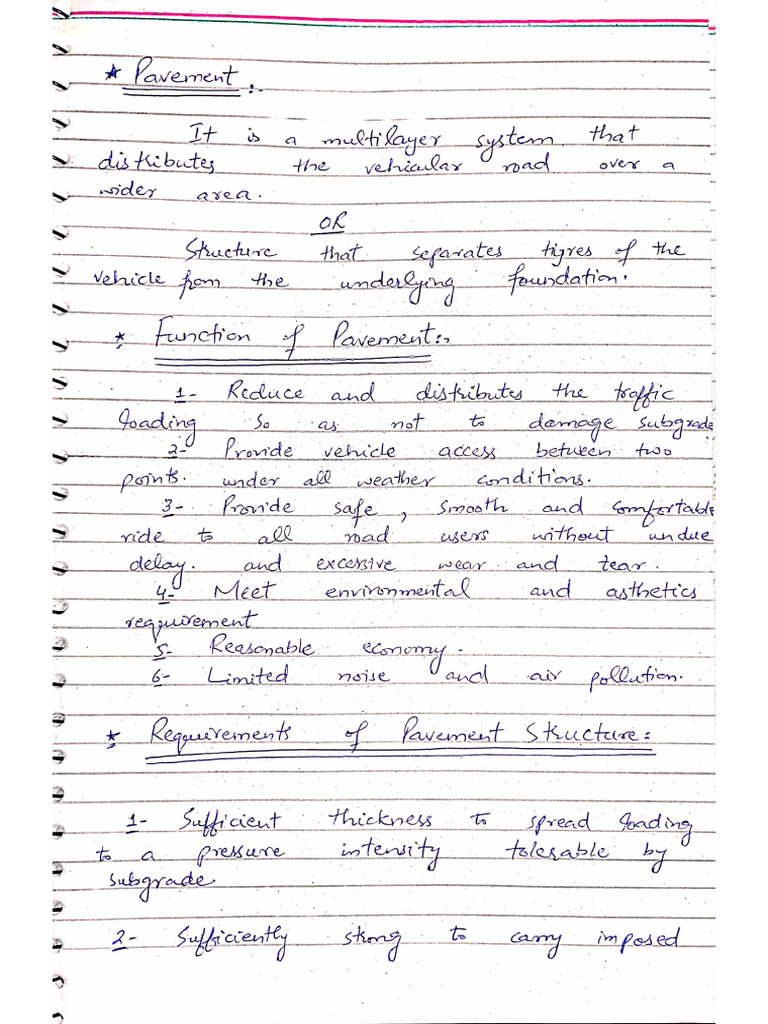 * Pavement :-
It is a multilayer system that
distributes the vehicular road over a
wider area.
OR
Structure that separates tigres of the
vehicle from the underlying foundation.
* Function of Pavement:-
1- Reduce and distributes the traffic
loading so as not to damage subgrade
2- Provide vehicle access between two
points. under all weather conditions.
3- Provide safe, smooth and comfortable
ride to all road users without undue
delay. and excessive wear and tear.
4- Meet environmental and asthetics
requirement
5- Reasonable economy.
6- Limited noise and air pollution.
* Requirements of Pavement Structure:
1- Sufficient thickness to spread loading
to a pressure intensity tolerable by
subgrade
2- Sufficiently strong to carry imposed